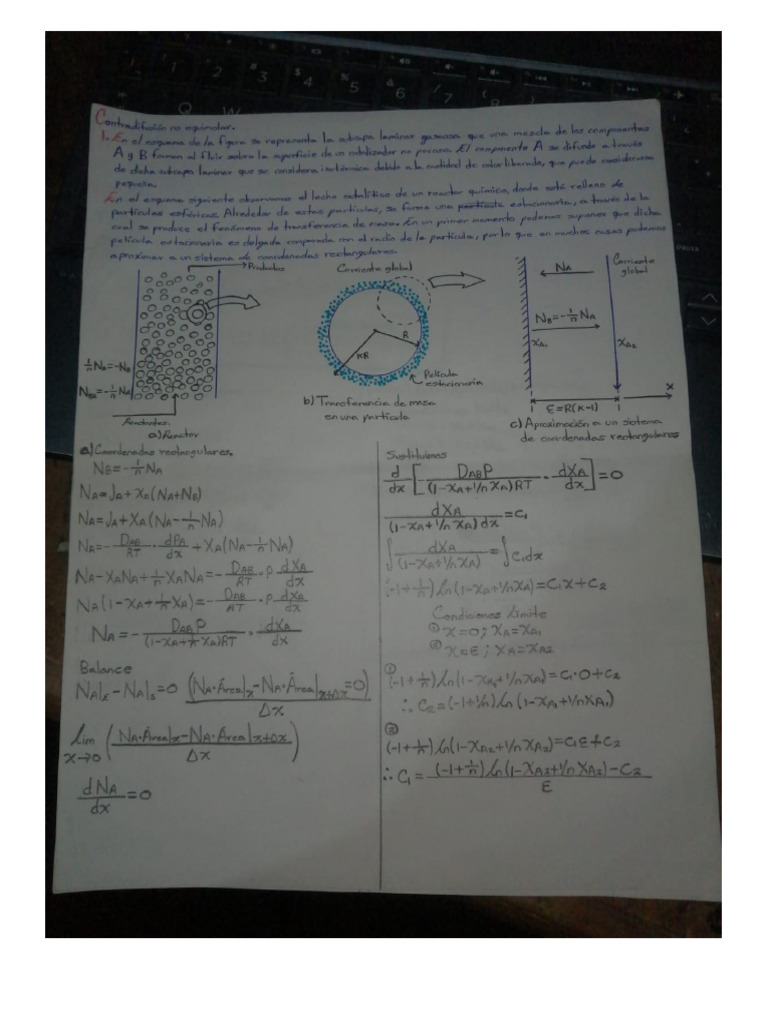 Contradifusión no equimolar.
1. En el esquema de la figura se representa la subcapa laminar gaseosa que una mezcla de los componentes
A y B forman al fluir sobre la superficie de un catalizador no poroso. El componente A se difunde a través
de dicha subcapa laminar que se considera isotérmica debido a la cantidad de calor liberada, que puede considerarse
pequeña.
En el esquema siguiente observamos el lecho catalítico de un reactor químico, donde está relleno de
partículas esféricas. Alrededor de estas partículas, se forma una estacionaria, a través de la
cual se produce el fenómeno de transferencia de masa. En un primer momento podemos suponer que dicha
película estacionaria es delgada comparada con el radio de la partícula, por lo que en muchos casos podemos
aproximar a un sistema de coordenadas rectangulares.
Productos
1/n NA=-NB
NBz=-1/n NA
Reactantes
a) Reactor
Corriente global
R
KR
Película
estacionaria
b) Transferencia de masa
en una partícula
NA
Corriente
global
NB=-1/n NA
XA1
XA2
x
ε=R(K-1)
c) Aproximación a un sistema
de coordenadas rectangulares
a) Coordenadas rectangulares.
NB=-1/n NA
NA=JA+XA(NA+NB)
NA=JA+XA(NA-1/n NA)
NA=-DAB/RT · dPA/dx + XA(NA-1/n NA)
NA-XANA+1/n XANA=-DAB/RT · P dXA/dx
NA(1-XA+1/n XA)=-DAB/RT · P dXA/dx
NA=-DABP/(1-XA+1/n XA)RT · dXA/dx
Balance
NA|x-NA|s=0 (NA·Área|x-NA·Área|x+Δx=0)/Δx
lim x→0 (NA·Área|x-NA·Área|x+Δx/Δx)
dNA/dx=0
Sustituimos
d/dx[DABP/(1-XA+1/n XA)RT · dXA/dx]=0
dXA/(1-XA+1/n XA)dx=C1
∫dXA/(1-XA+1/n XA)=∫C1dx
(-1+1/n)ln(1-XA+1/n XA)=C1x+C2
Condiciones Límite
① X=0; XA=XA1
② X=ε; XA=XA2
①
(-1+1/n)ln(1-XA1+1/n XA1)=C1·0+C2
∴ C2=(-1+1/n)ln(1-XA1+1/n XA1)
②
(-1+1/n)ln(1-XA2+1/n XA2)=C1ε+C2
∴ C1=(-1+1/n)ln(1-XA2+1/n XA2)-C2/ε